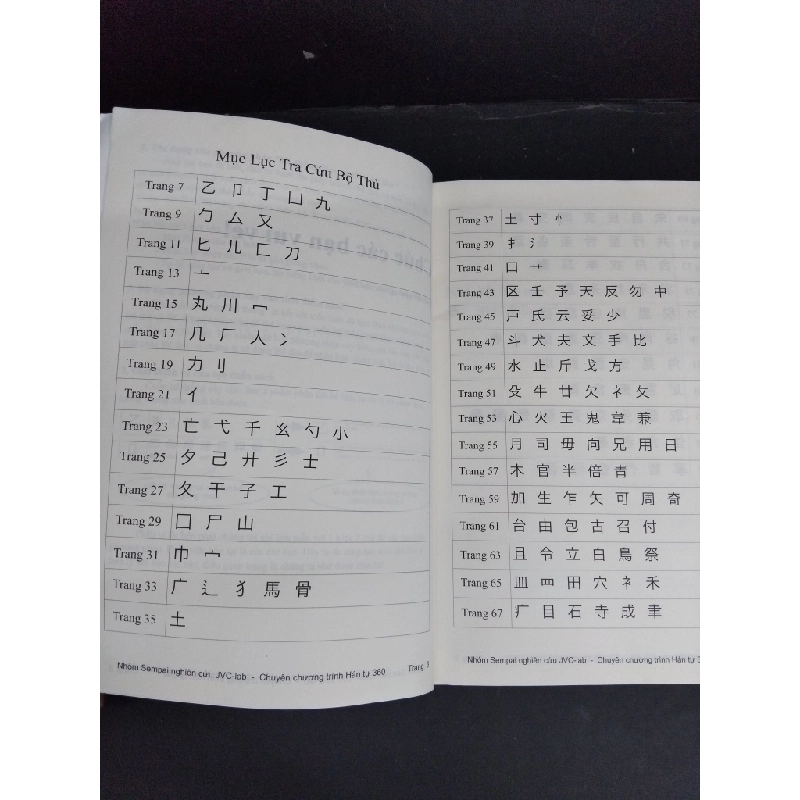 Mục Lục Tra Cứu Bộ Thủ
Trang 7 乙 卩 丁 凵 九
Trang 9 勹 厶 又
Trang 11 匕 儿 匚 刀
Trang 13 亠
Trang 15 丸 川 冖
Trang 17 几 厂 人 冫
Trang 19 力 刂
Trang 21 亻
Trang 23 亡 弋 千 幺 勺 小
Trang 25 夕 己 廾 彡 士
Trang 27 夂 干 子 工
Trang 29 囗 尸 山
Trang 31 巾 宀
Trang 33 广 辶 犭 馬 骨
Trang 35 土
Nhóm Sempai nghiên cứu, JVC-lab - Chuyên chương trình Hán tự 360
Trang
Trang 37 土 寸 忄
Trang 39 扌 氵
Trang 41 口
Trang 43 区 壬 予 天 反 勿 中
Trang 45 戸 氏 云 妥 少
Trang 47 斗 犬 夫 文 手 比
Trang 49 水 止 斤 戈 方
Trang 51 殳 牛 廿 欠 ネ 攵
Trang 53 心 火 王 鬼 韋 兼
Trang 55 月 司 毋 向 兄 用 日
Trang 57 木 官 半 倍 青
Trang 59 加 生 乍 矢 可 周 奇
Trang 61 台 由 包 古 召 付
Trang 63 且 令 立 白 鳥 祭
Trang 65 皿 罒 田 穴 衤 禾
Trang 67 疒 目 石 寺 成 聿
Nhóm Sempai nghiên cứu JVC-lab - Chuyên chương trình Hán tự